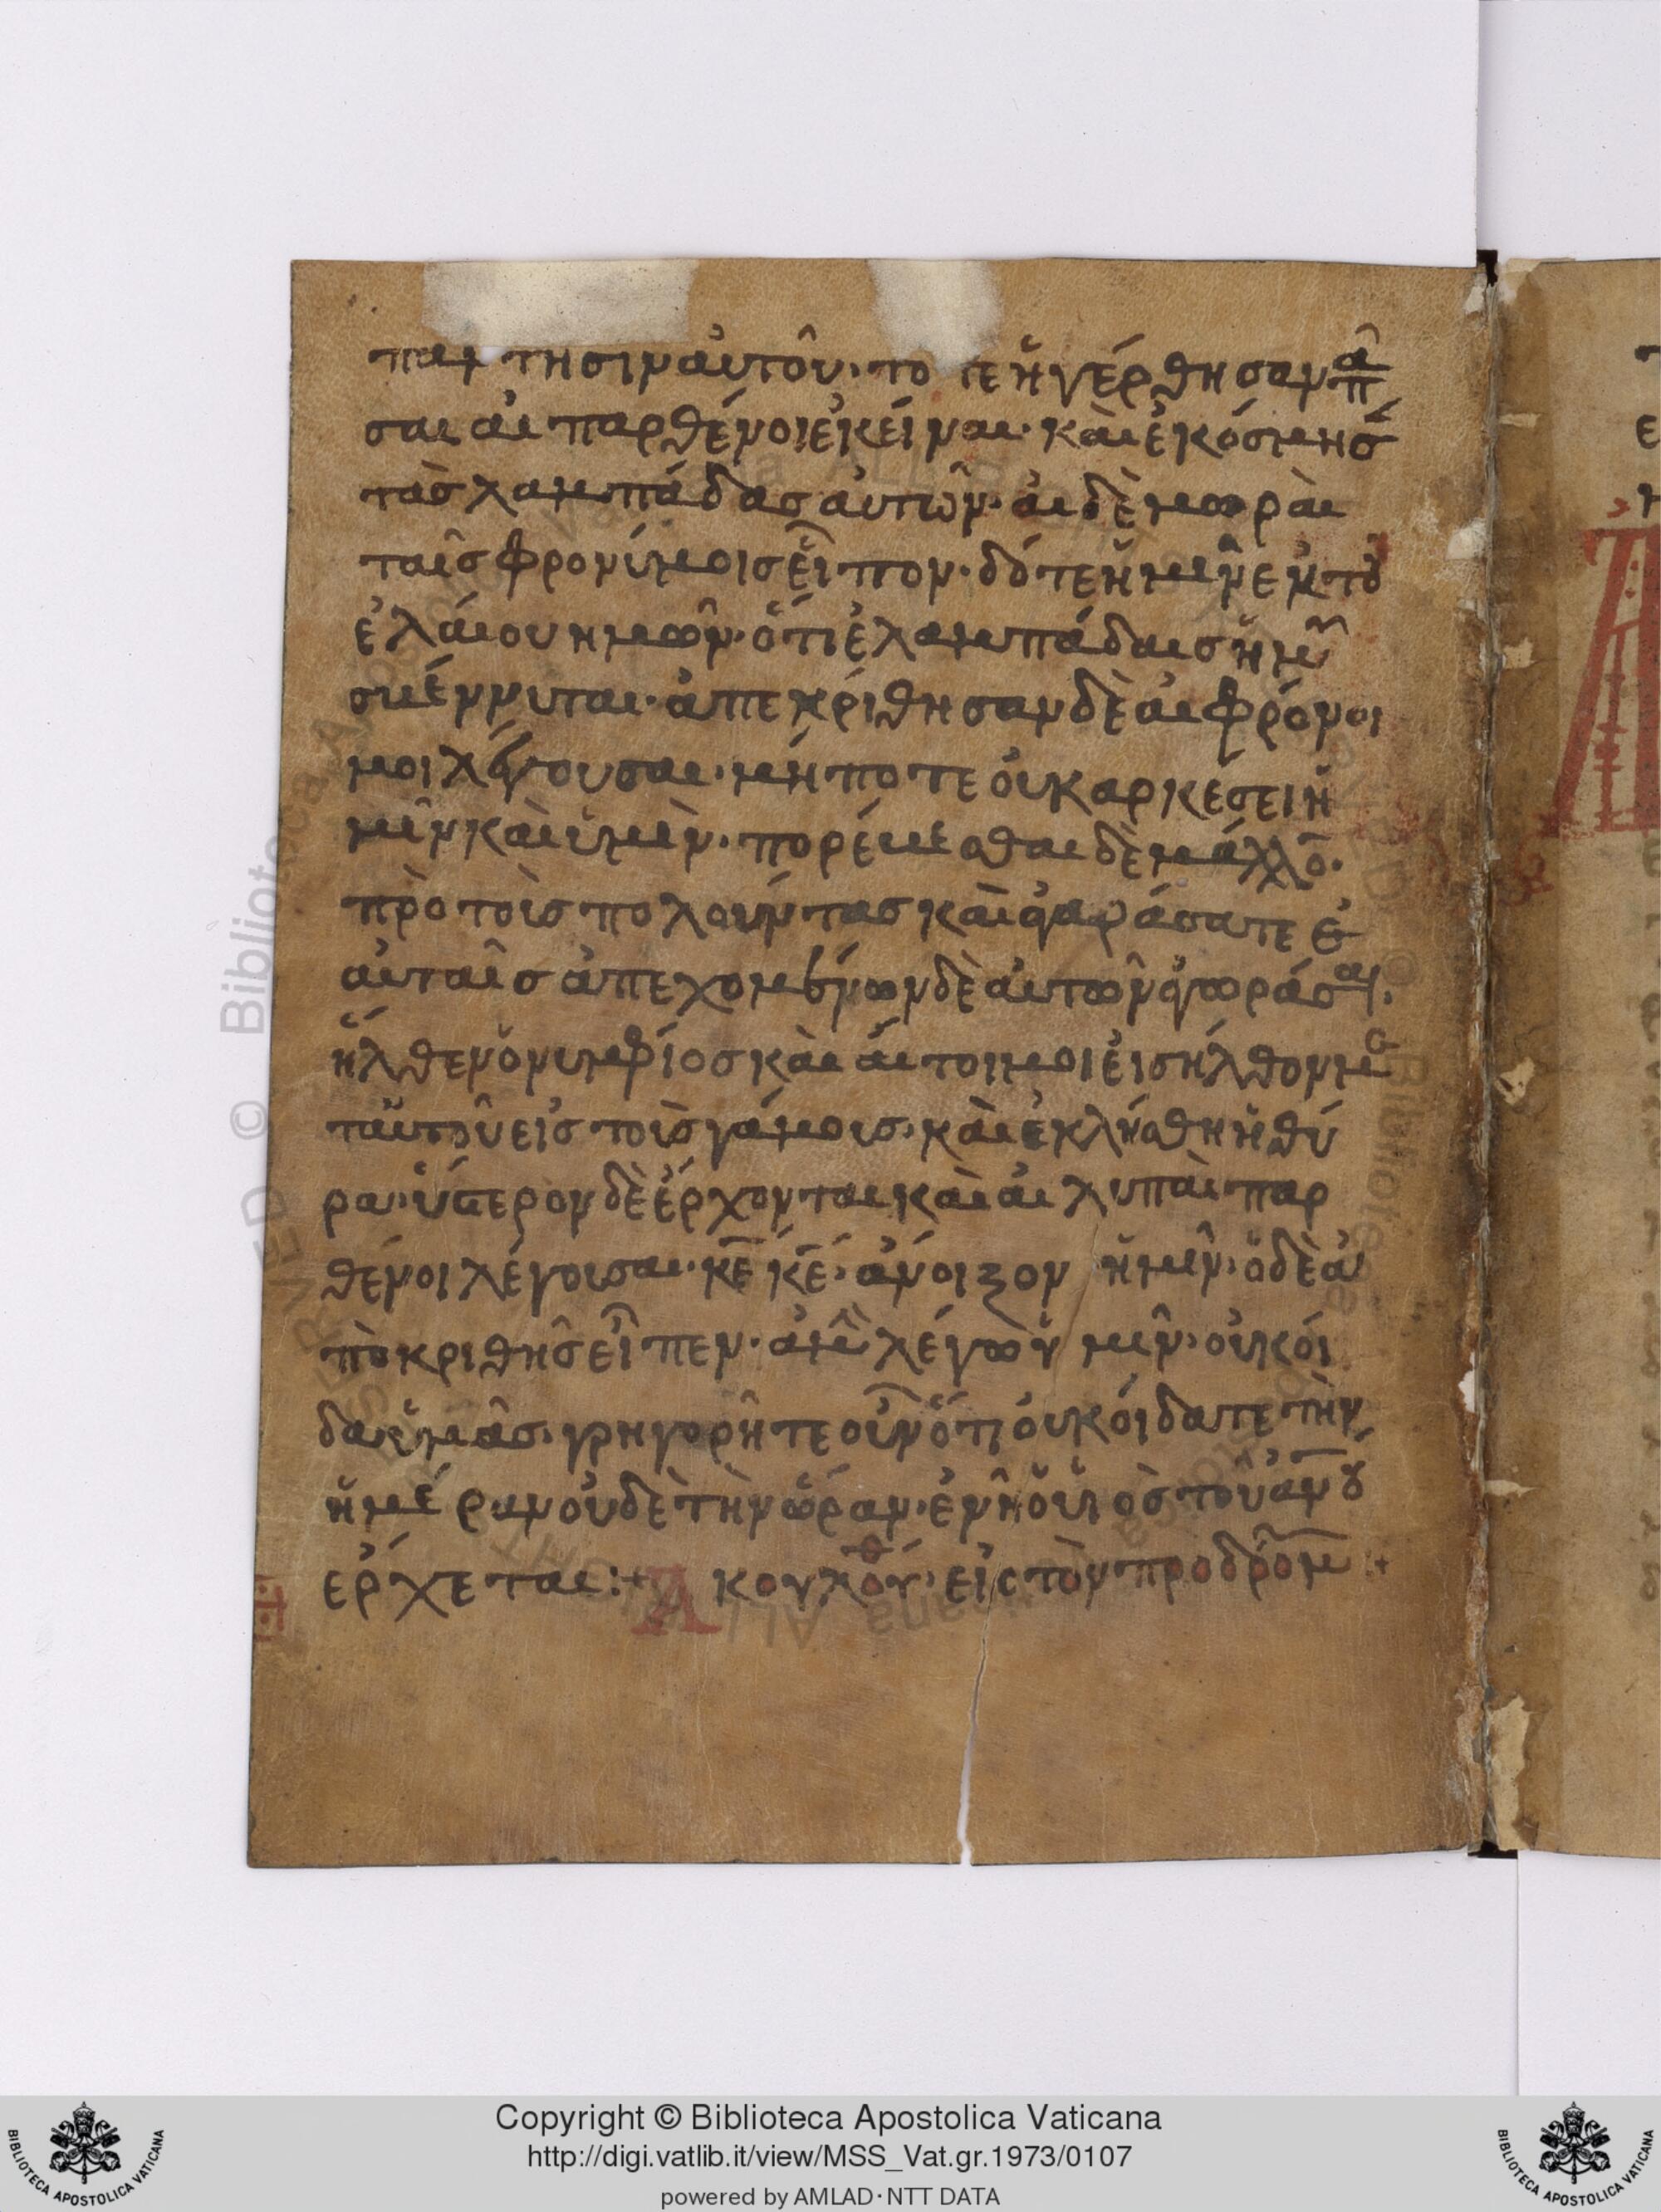 παντησιν αὐτοῦ· το τε ἠγέρθησαν πᾶ
σαι αἱ παρθένοι ἐκείναι· καὶ ἐκόσμησ
τὰσ λαμπάδασ αὐτῶν· ἁι δὲ μωραὶ
ταῖσ φρονίμοισ εἶπον· δότε ἡμῖν ἐκ τοῦ
ἐλάιου ημῶν· ὅτι ἐ λαμπάδαισ ἡμ
σκέννυται· ἀπεκρίθησαν δὲ ἁι φρόνοι
μοι λέγουσαι· μήποτε ὀυκ αρκεσει ἡ
μῖν καὶ ὑμὶν· πορέυεσθαι δὲ μάλλο·
πρὸ τοὶσ πολούντασ καὶ ἀγωράσατε ἑ
αὐταῖσ ἀπεχομένων δὲ αὐτῶν ἀγωράσαι·
ἦλθεν ὁ νυμφίοσ καὶ ἁι τοιμοι ἐισήλθον με
τ αὐτοῦ εἰσ τοὺσ γάμουσ· καὶ ἐκλήσθη ἡ θύ
ρα· ὑστερον δὲ ἔρχονται καὶ ἁι λυπαὶ παρ
θένοι λέγουσαι· κε κε· ἀνοιξον ἡμῖν· ὁ δὲ ἀ
ποκριθῆσ εἶπεν· ἀμ λέγω ὑμῖν· οὐκ ὁι
δα ὑμᾶσ· γρηγορῆτε οὖν ὅτι ὀυκ ὁιδατε τὴν
ἡμέραν οὐδὲ τὴν ὥραν· ἐν ἧ ὁ ὑιὸσ τοῦ ἀνου
ερχεται :+ Ακουλου· εἰς τὸν προδρομ :+
Copyright © Biblioteca Apostolica Vaticana
http://digi.vatlib.it/view/MSS_Vat.gr.1973/0107
powered by AMLAD·NTT DATA
BIBLIOTECA APOSTOLICA VATICANA
BIBLIOTECA APOSTOLICA VATICANA